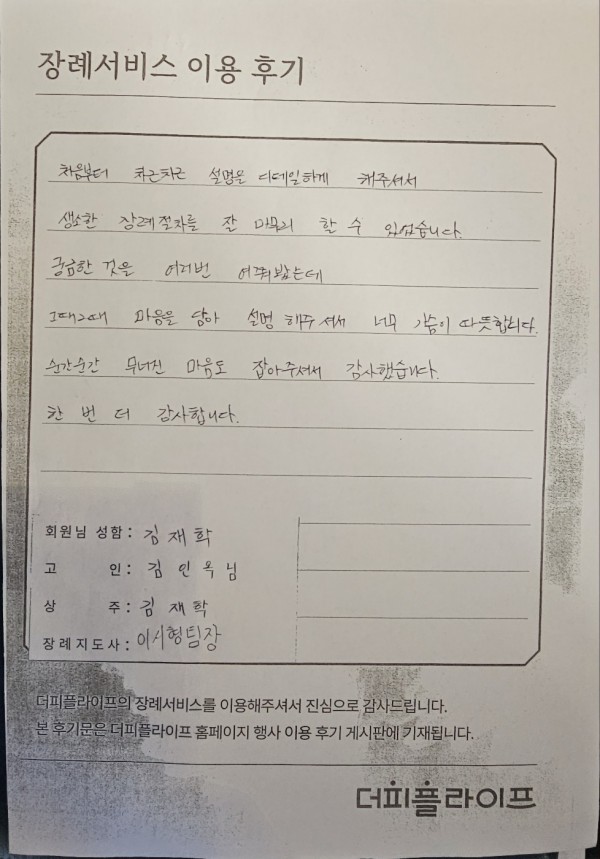 장례서비스 이용 후기
처음부터 차근차근 설명을 디테일하게 해주셔서
생소한 장례절차를 잘 마무리 할 수 있었습니다.
궁금한 것을 여러번 여쭤봤는데
그때그때 마음을 담아 설명 해주셔서 너무 가슴이 따뜻합니다.
순간순간 무너진 마음도 잡아주셔서 감사했습니다.
한 번 더 감사합니다.
회원님 성함 : 김재학
고 인 : 김인옥님
상 주 : 김재학
장례지도사 : 이시형팀장
더피플라이프의 장례서비스를 이용해주셔서 진심으로 감사드립니다.
본 후기문은 더피플라이프 홈페이지 행사 이용 후기 게시판에 기재됩니다.
더피플라이프